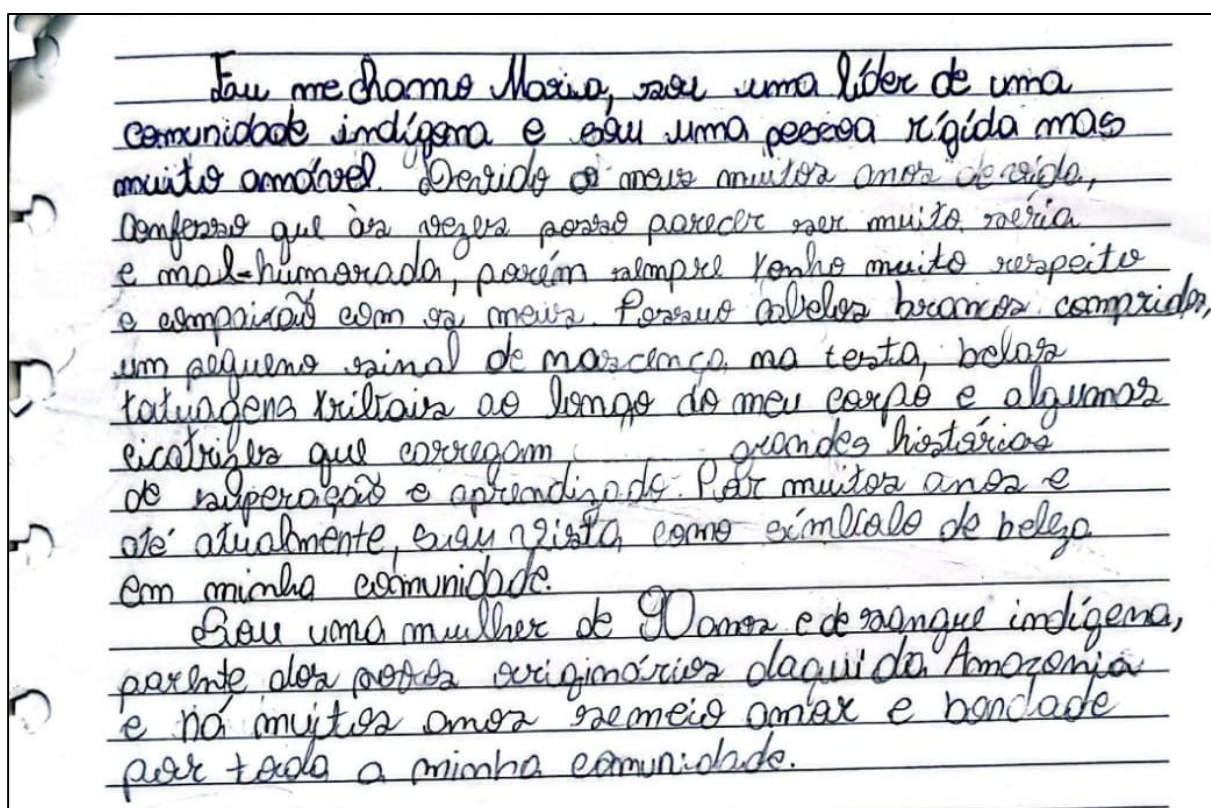 Eau me chamo Maria, sou uma líder de uma
comunidade indígena e sou uma pessoa rígida mas
muito amável. Devido a meus muitos anos de vida,
confesso que às vezes posso parecer ser muito séria
e mal-humorada, porém sempre tenho muito respeito
e compaixão com os meus. Possuo cabelos brancos compridos,
um pequeno sinal de nascença na testa, belas
tatuagens tribais ao longo do meu corpo e algumas
cicatrizes que carregam grandes histórias
de superação e aprendizado. Por muitos anos e
até atualmente, sou vista como símbolo de beleza
em minha comunidade.
Sou uma mulher de 90 anos e de sangue indígena,
parente dos povos originários daqui da Amazonia
e há muitos anos semeio amor e bondade
por toda a minha comunidade.